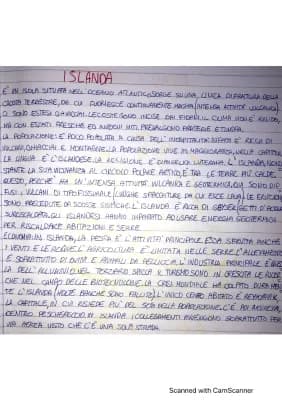 ISLANDA
È UN ISOLA SITUATA NELL'OCEANO ATLANTICO, SORGE SU UNA LINEA DI FRATTURA DELLA
CROSTA TERRESTRE, DA CUI FUORIESCE CONTINUAMENTE MAGMA (INTENSA ATTIVITA' VULCANICA).
CI SONO ESTESI GHIACCIAI. LE COSTE SONO INCISE DAI FIORDI. IL CLIMA NON È RIGIDO,
MA CON ESTATI FRESCHE ED INVERNI MITI. PREVALGONO PRATERIE E TUNDRA.
LA POPOLAZIONE: È POCO POPOLATA A CAUSA DELL' INOSPITALITA'. INFATTI E' RICCA DI
VULCANI, GHIACCIAI E MONTAGNE. LA POPOLAZIONE VIVE IN MAGGIORANZA NELLA CAPITALE.
LA LINGUA È L'ISLANDESE. LA RELIGIONE È EVANGELICO LUTERANA. L'ISLANDA, NONO-
STANTE LA SUA VICINANZA AL CIRCOLO POLARE ARTICO, È TRA LE TERRE PIU' CALDE.
QUESTO, PERCHE' HA UN'INTENSA ATTIVITA' VULCANICA E GEOTERMICA. QUI SONO DIF-
FUSI I VULCANI DI TIPO FISSURALE (LUNGHE SPACCATURE DA CUI ESCE LAVA). LE ERUZIONI
SONO PRECEDUTE DA SCOSSE SISMICHE. L'ISLANDA È RICCA DI GEYSER (GETTI D'ACQUA
GLI ISLANDESI HANNO IMPARATO AD USARE ENERGIA GEOTERMICA
PER RISCALDARE ABITAZIONI E SERRE.
ECONOMIA: IN ISLANDA, LA PESCA È L'ATTIVITA' PRINCIPALE. È DA SFRUTTA ANCHE
I VENTI E LE ACQUE. L'AGRICOLTURA È LIMITATA NELLE SERRE. L'ALLEVAMENTO
È SOPRATTUTTO DI OVINI E ANIMALI DA PELLICCIA. L'INDUSTRIA PRINCIPALE È QUEL-
LA DELL'ALLUMINIO. NEL TERZIARIO SPICCA IL TURISMO. SONO IN CRESCITA LE RICER-
CHE NEL CAMPO DELLE BIOTECNOLOGIE. LA CRISI MONDIALE HA COLPITO DURAMEN-
TE L'ISLANDA (MOLTE BANCHE SONO FALLITE). L'UNICO CENTRO ABITATO È REYKJAVIK,
LA CAPITALE, IN CUI RISIEDE PIU' DEL 50% DELLA POPOLAZIONE. C'È POI
CENTRO PESCHERECCIO IN ISLANDA. I COLLEGAMENTI AVVENGONO SOPRATTUTTO PER
VIA AEREA VISTO CHE C'È UNA SOLA STRADA.
Scanned with CamScanner